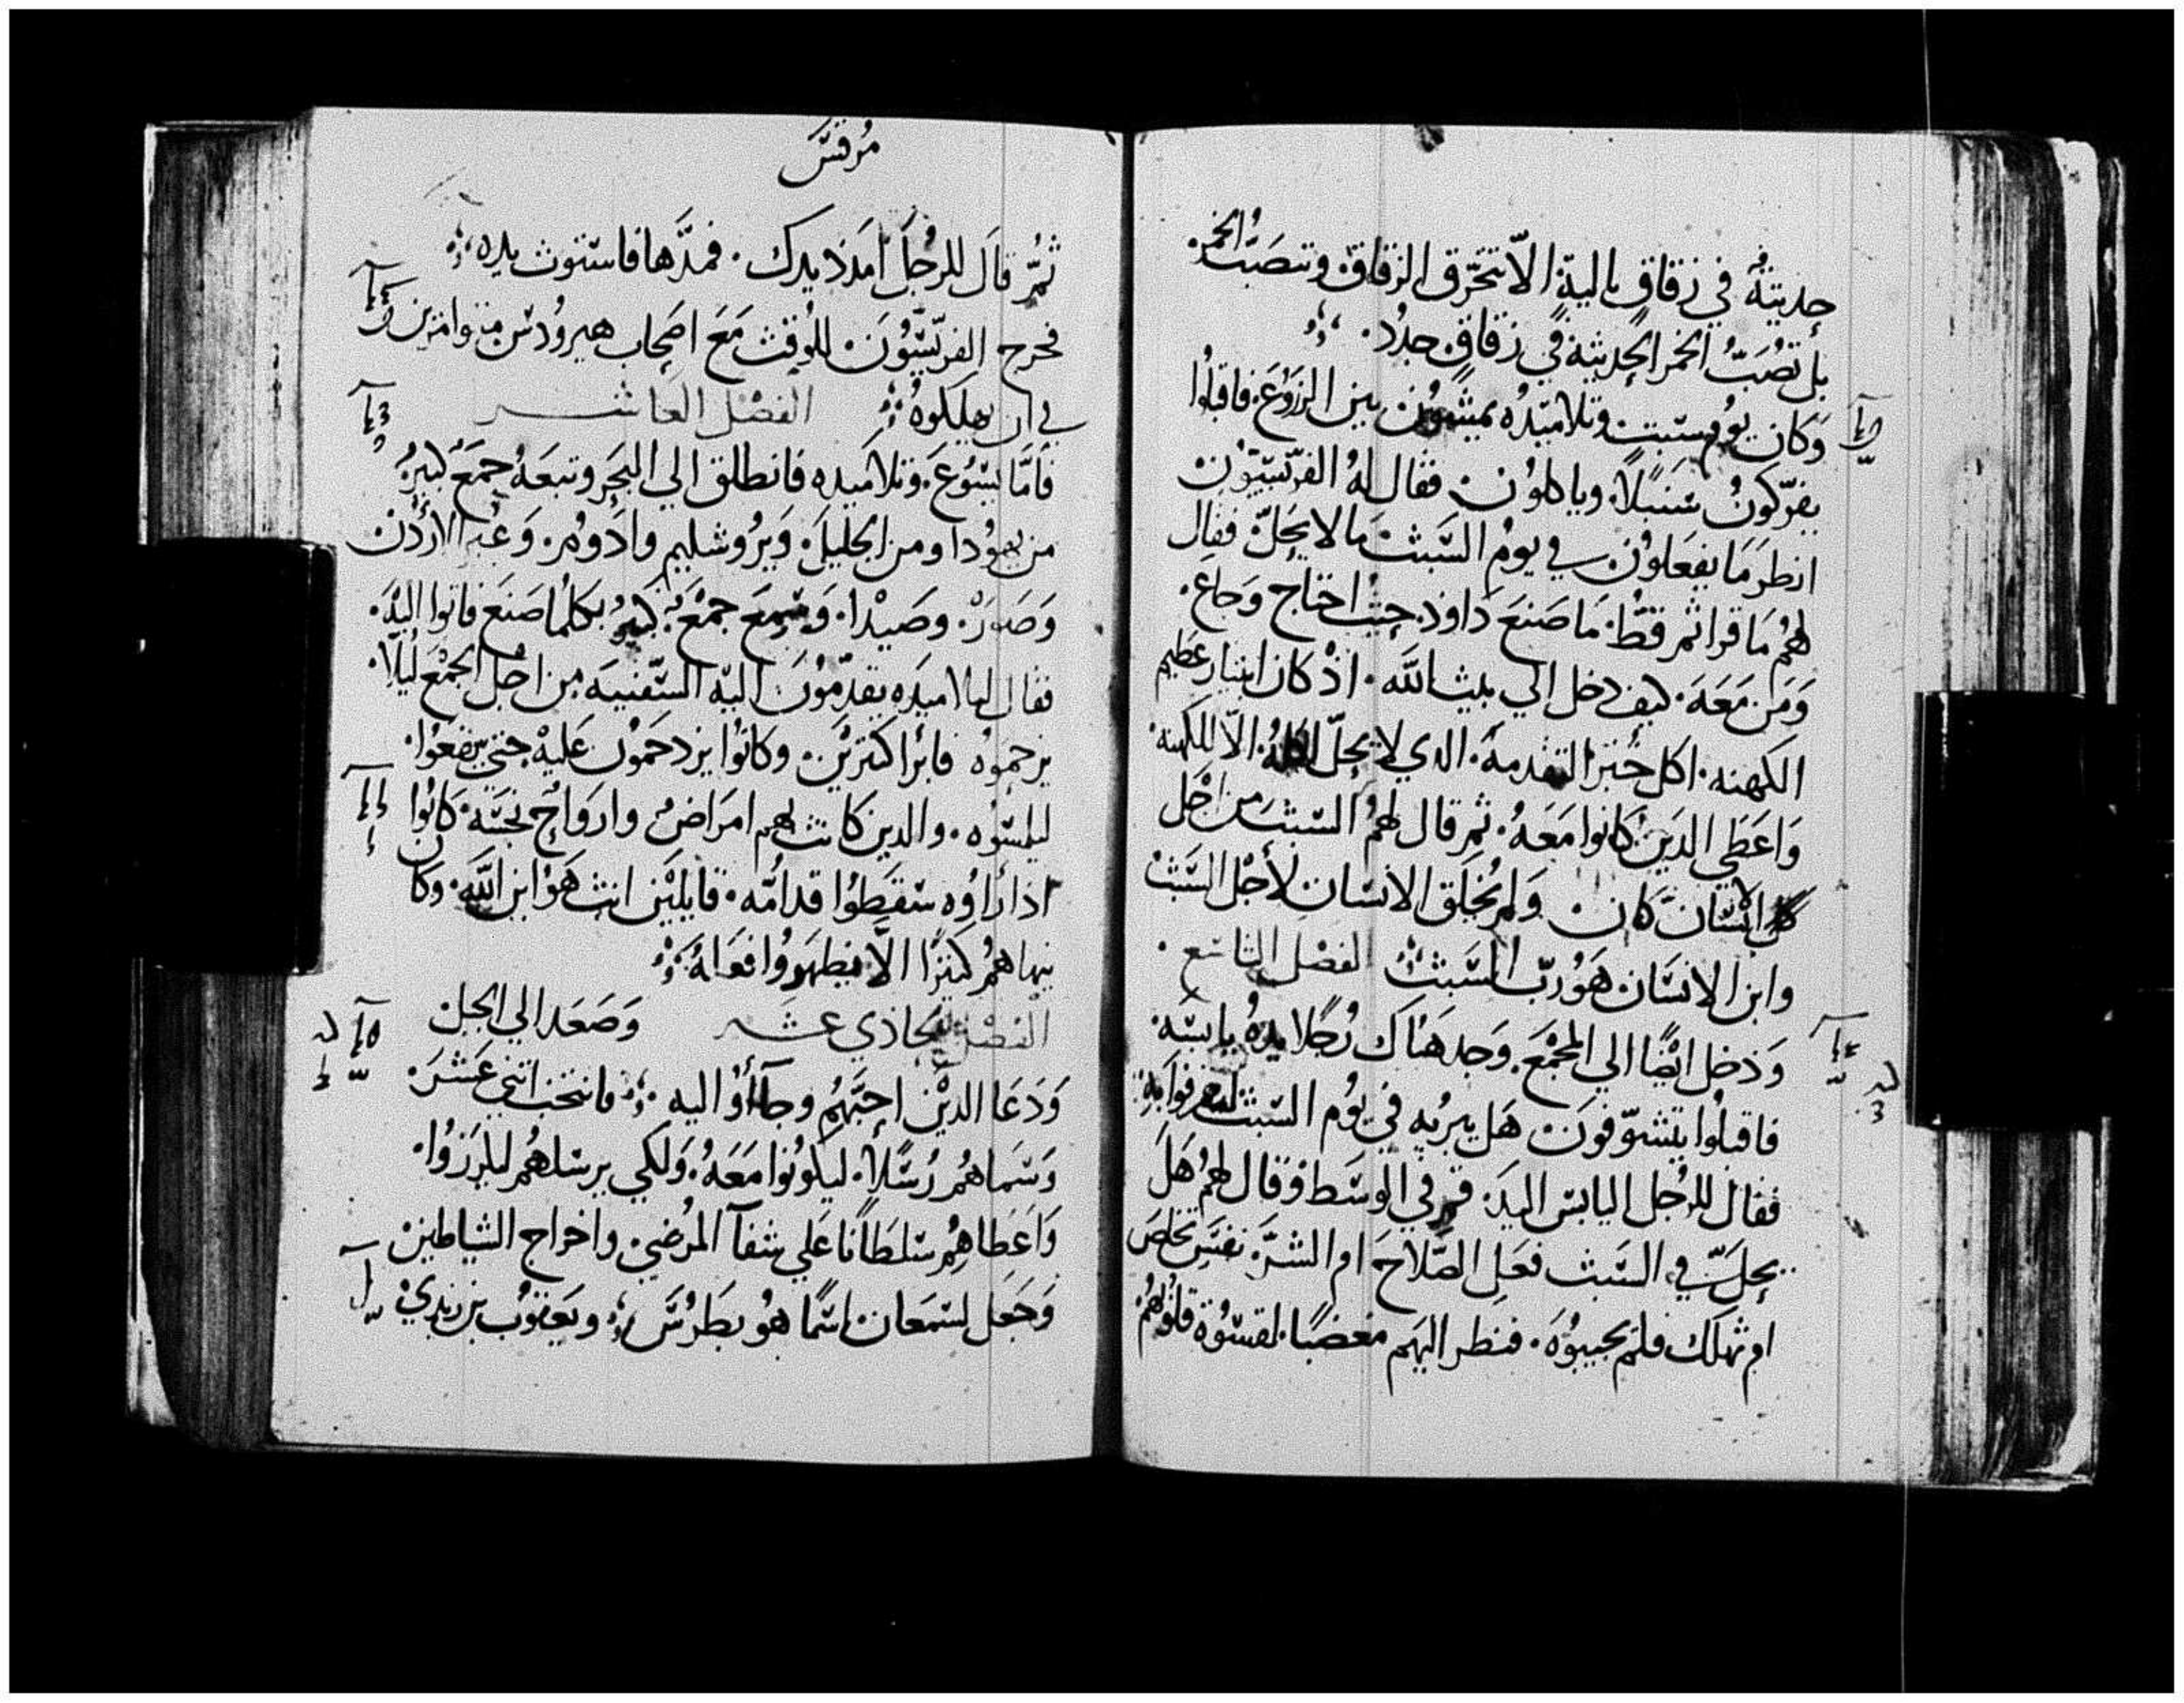 حديثه في زقاق باليةٍ الّا تتخرق الزقاق وتنصَبّ الخمر
بل تُصَبّ الخمر الحديثه في زقاقٍ جددٌ
وَكان يوم سبت وتلاميذه يمشون بين الزروع فاقبلوا
يفرّكون سَنبلًا وياكلون فقال لهُ الفريسيون
انظر مَا يفعَلون في يوم السَبت مَا لا يحلّ فقال
لهُم مَا قراتم قط مَا صَنعَ داود حيث احتاج وَجاع
وَمَن مَعَهَ كيف دخل الي بيت الله اذ كان ابيثار عظيم
الكهنه اكل خبز التقدمه الدي لا يحلّ اكله الّا للكهنه
وَاعطي الدين كانوا مَعَهُ ثم قال لهمُ السَبت من اجل
الانسان كان وَلم يُخلَق الانسان لأجل السَبت
وابن الانسَان هوَ ربّ السَبت الفصل التاسع
وَدخل ايضًا الي المجمَع وَجد هنُاك رجُلًا يدهُ يابسَه
فاقبلوا يتشوّفون هَل يبريه في يوم السَبت ليعرفوا به
فقال للرجُل اليابس اليد قم في الوسَط وقال لهمُ هَل
يحلّ في السَبت فعَل الصَلاح ام الشرّ نفسَ تخلص
ام تهلك فلم يجيبوُه فنظر اليهَم مغضبًا لقسَوة قلوبهُم
مُرقسَ
ثمّ قال للرجُل امدد يدك فمدَّها فاستوت يده
فخرج الفريسّيُونَ للوقت مَعَ اصحاب هيرودس متوامرين
في ان يهلكوهُ الفصل العاشر
فامَّا يسَوعَ وتلاميده فانطلق الي البحَر وتبعَهُ جمعَ كبير
من يهوُدا ومن الجليل وَيروشليم وادَوم وَعبر الأردن
وَصَور وصَيدا وَسمعَ جمعَ كبير بكلما صَنعَ فاتوا اليهَ
فقال لتلاميده يقدّموُن اليه السّفنيه من اجل الجمعَ ليلّا
يزحموُه فابرا كثرين وكانوا يزدحمَوُن عَليه حتي يقعَوا
ليلمسوُه والدين كانت لهم امرَاض وارواح نجسَه كانوا
ادا راوُه سَقطوا قدامُه قايلين انت هوَ ابن اللهَ وكان
ينهاهُم كتيرًا الّا يظهرَوُا فعَالهُ
الفصل الحادي عشر وَصَعَد الي الجبل
وَدعَا الدين احبَّهُم وجآأوُ اليه فانتخب اتني عَشرَ
وَسَماهُم رُسَلًا ليكونوا مَعَهُ وَلكي يرسَلهُم ليكرزوُا
وَاعَطاهِمُ سَلطَانًا عَلي شفآ المرُضي واخراج الشياطين
وَجَعَل لسَمعَان اسَمًا هوُ بطَرسُ ويعَقوب بن زبدي